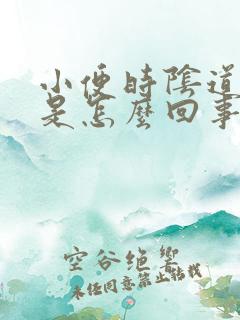 小便時陰道
是怎麼回事
空谷绝響
未经同意禁止转载